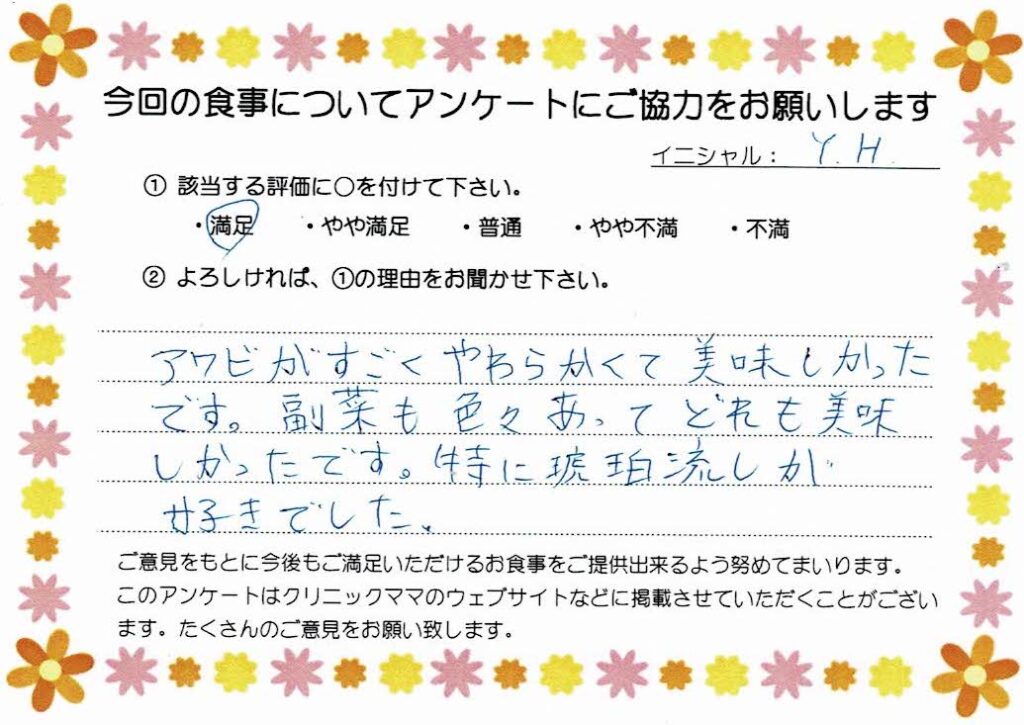 今回の食事についてアンケートにご協力をお願いします
イニシャル： Y.H.
① 該当する評価に○を付けて下さい。
・満足 ・やや満足 ・普通 ・やや不満 ・不満
② よろしければ、①の理由をお聞かせ下さい。
アワビがすごくやわらかくて美味しかった
です。副菜も色々あってどれも美味
しかったです。特に琥珀流しが
好きでした。
ご意見をもとに今後もご満足いただけるお食事をご提供出来るよう努めてまいります。
このアンケートはクリニックママのウェブサイトなどに掲載させていただくことがござい
ます。たくさんのご意見をお願い致します。